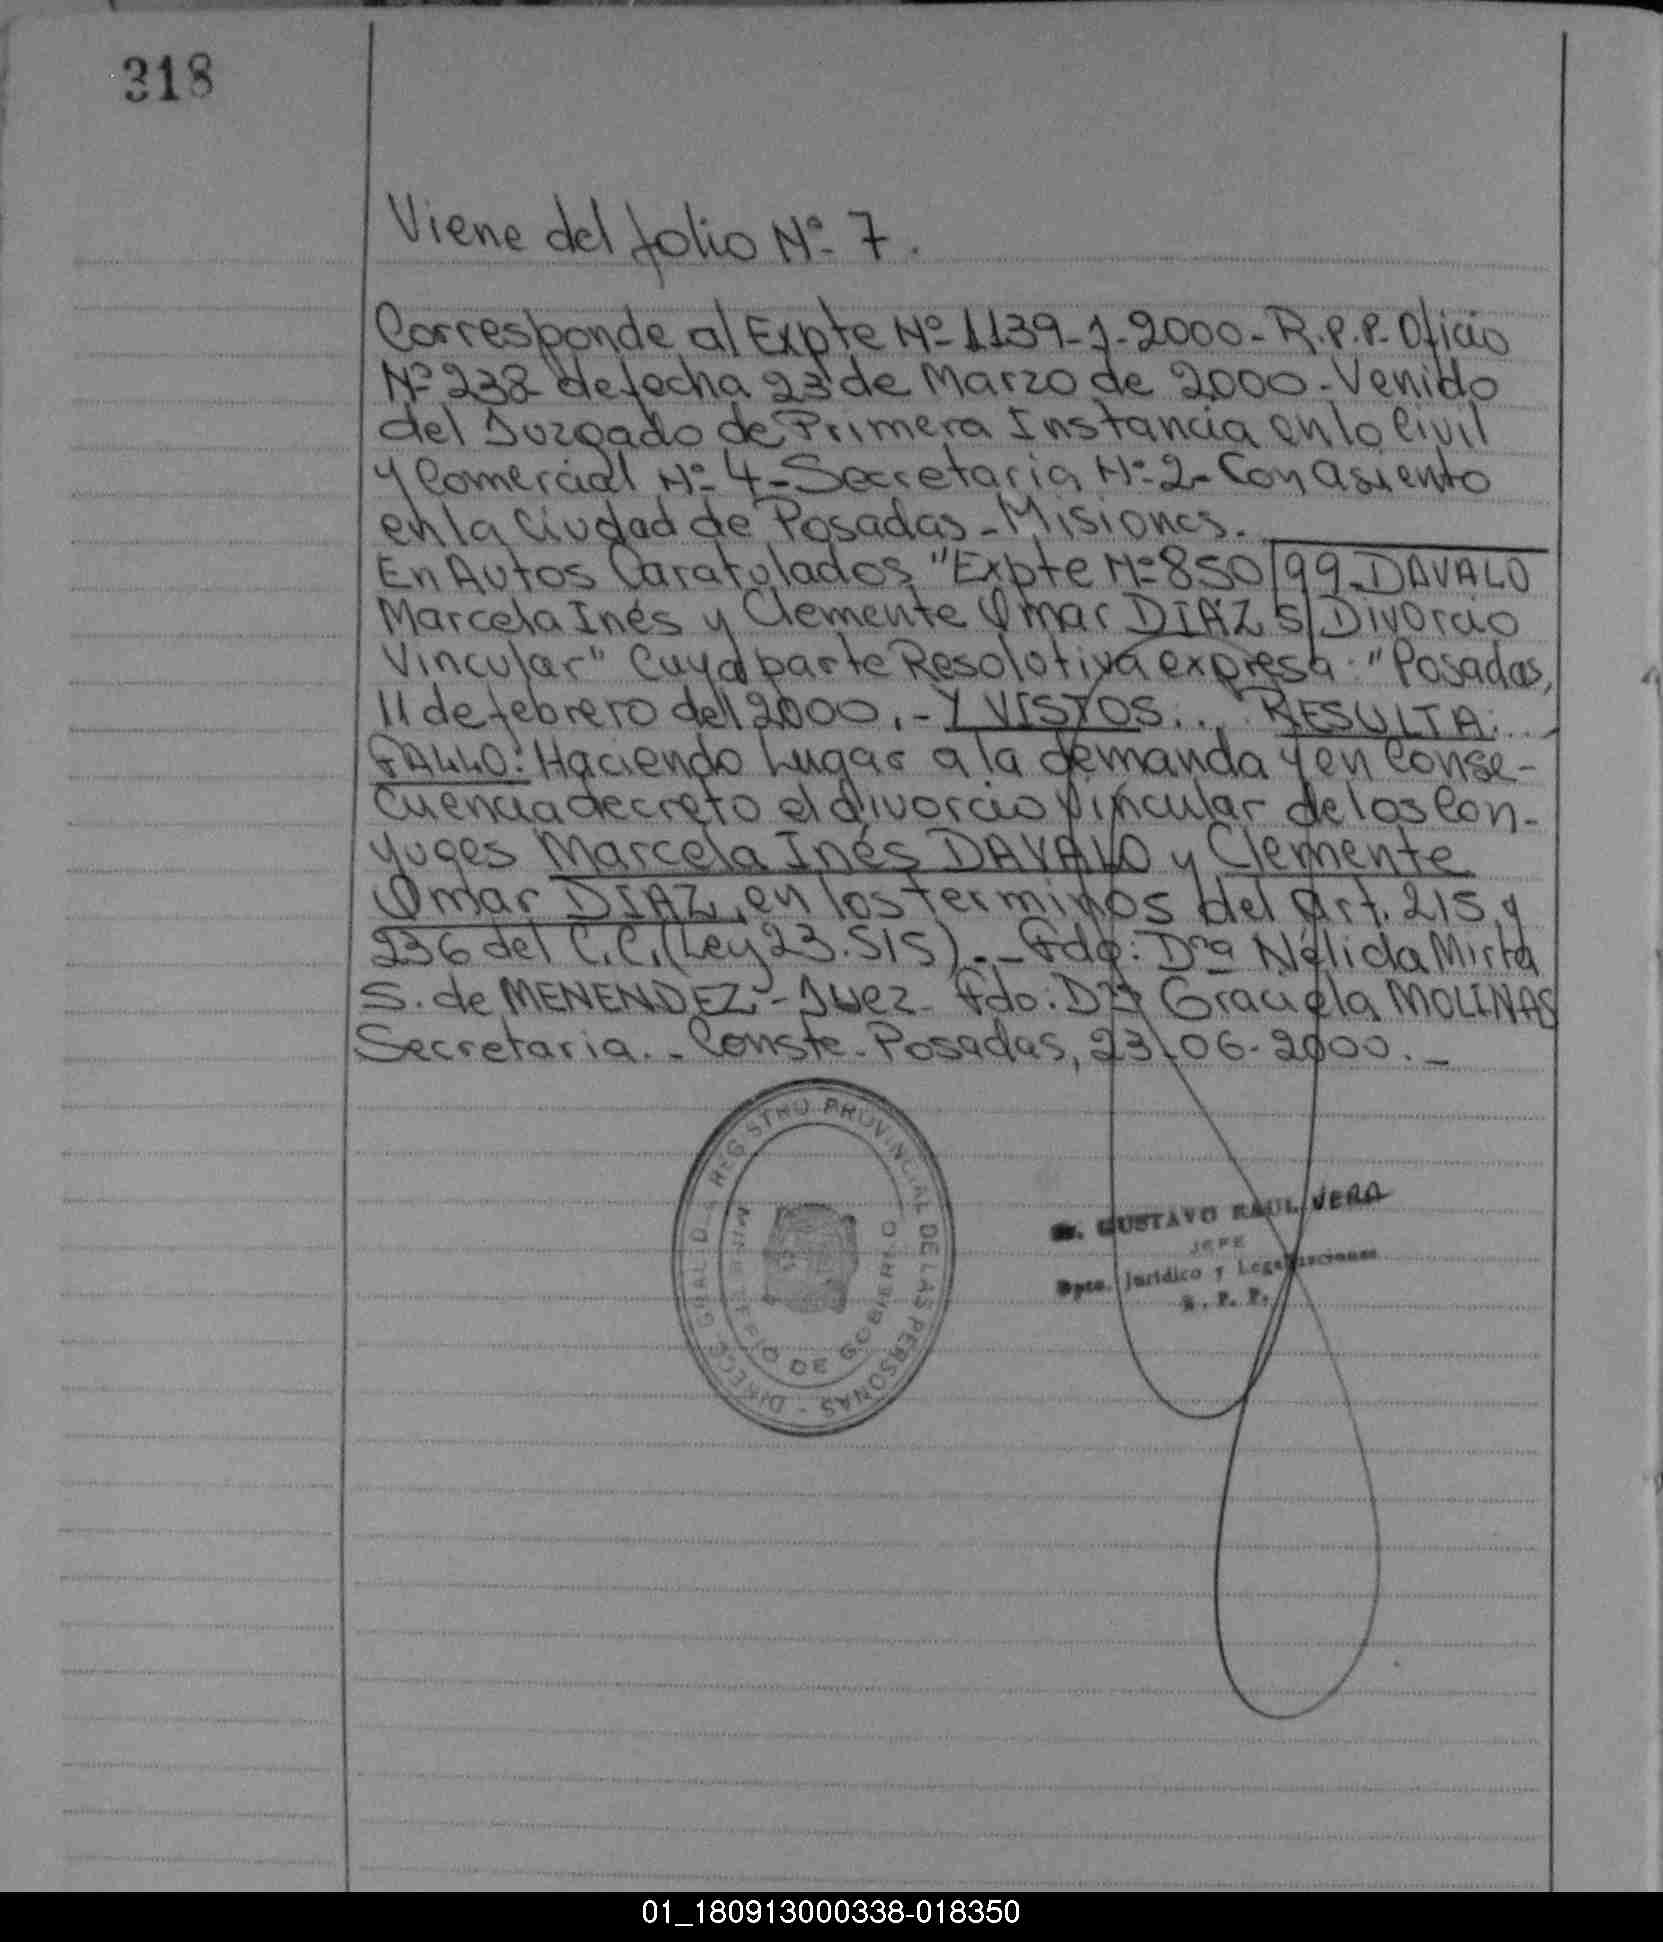 318
Viene del folio Nº 7.
Corresponde al Expte Nº 1139-J-2000- R.P.P. Oficio
Nº 238 de fecha 23 de Marzo de 2000 - Venido
del Juzgado de Primera Instancia en lo Civil
y Comercial Nº 4 - Secretaria Nº 2 - Con asiento
en la Ciudad de Posadas - Misiones.
En Autos Caratulados "Expte Nº 850/99 - DAVALO
Marcela Inés y Clemente Omar DIAZ S/ Divorcio
Vincular" Cuya parte Resolutiva expresa: "Posadas,
11 de febrero del 2000.- Y VISTOS... RESULTA:...
FALLO: Haciendo Lugar a la demanda y en Conse-
cuencia decreto el divorcio vincular de los Con-
yuges Marcela Inés DAVALO y Clemente
Omar DIAZ, en los terminos del art. 215 y
236 del C.C. (Ley 23.515).-- Fdo: Dra Nélida Mirta
S. de MENENDEZ - Juez - Fdo: Dra Graciela MOLINAS
Secretaria.- Conste - Posadas, 23-06-2000.-
DIRECC. GRAL. DEL REGISTRO PROVINCIAL DE LAS PERSONAS -
MINISTERIO DE GOBIERNO
GUSTAVO RAUL VERA
JEFE
Dpto. Jurídico y Legalizaciones
R. P. P.
01_180913000338-018350